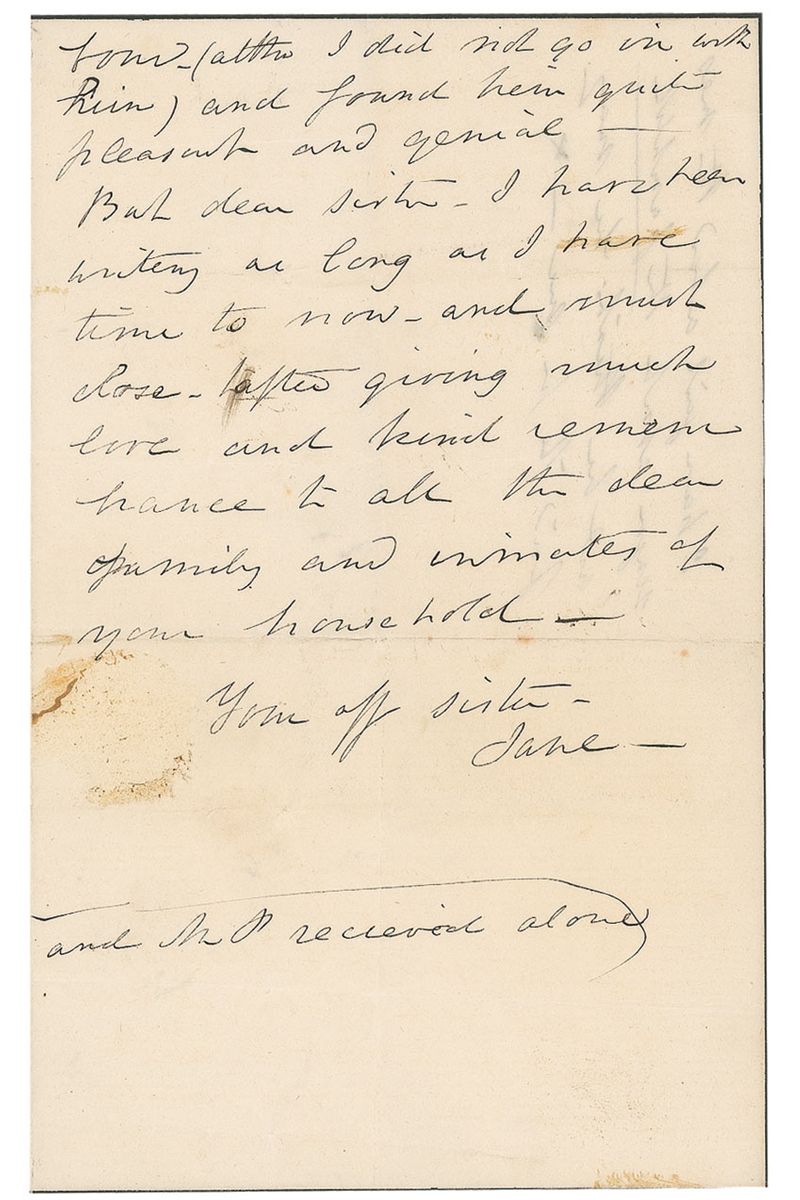 (altho I did not go in with
him) and found him quite
pleasant and genial —
But dear sister - I have been
writing as long as I have
time to now - and must
close - after giving much
love and kind remem
brance to all the dear
family and inmates of
your household —
Your aff sister -
Jane —
and Mr P recieved alone